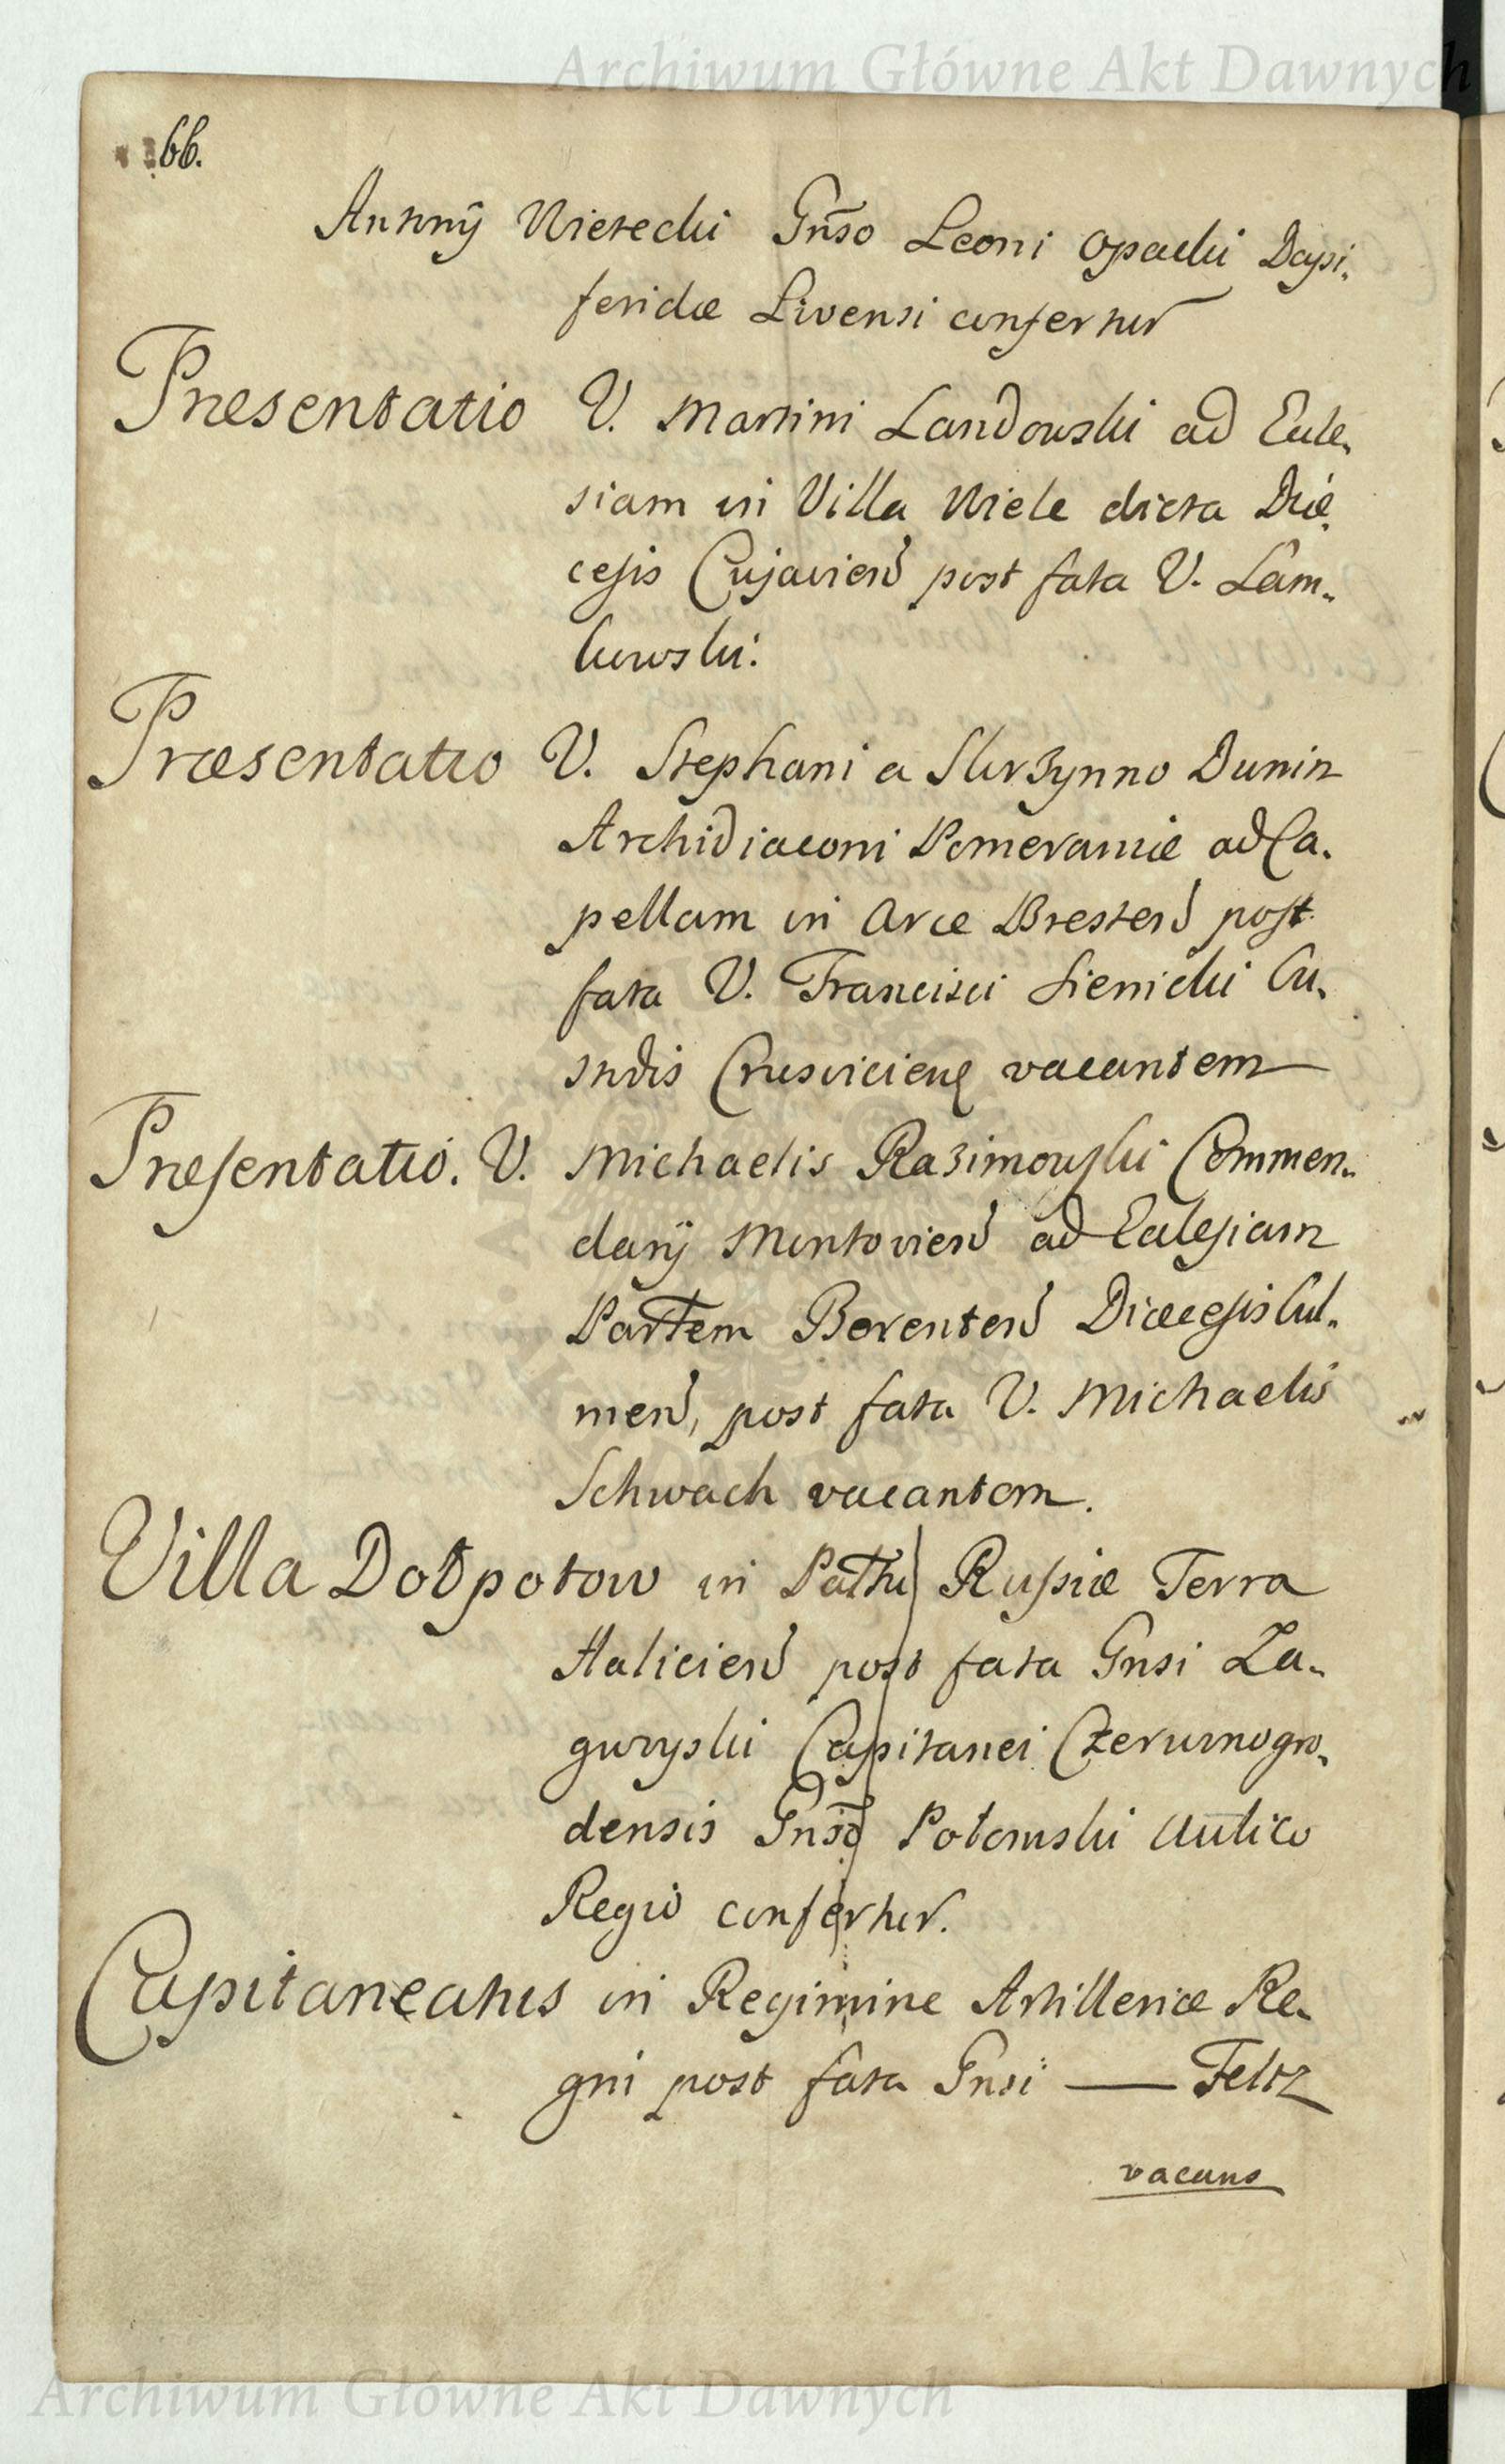 Archiwum Główne Akt Dawnych
66.
Antonÿ Nietecki Gnso Leoni Opacki Dapi„
feridæ Livensi confertur
Præsentatio V. Martini Landowski ad Eccle„
siam in Villa Wiele dicta Diæ„
cesis Cujavien post fata V. Lam„
kowski:
Præsentatio V. Stephani a Skrzynno Dunin
Archidiaconi Pomeraniæ ad Ca„
pellam in Arce Bresten post
fata V. Francisci Sienicki Cu„
stodis Crusvicien vacantem
Præsentatio. V. Michaelis Razimowski Commen„
darÿ Montovien ad Ecclesiam
Partem Borenten Diæcesis Cul„
men, post fata V. Michaelis
Schwach vacantem.
Villa Dołpotow in Pattu Russiæ Terra
Halicien post fata Gnsi Za„
gurzski Capitanei Czerwonogro„
densis Gnso Potomski Aulico
Regio confertur.
Capitaneatus in Regimine Artilleriæ Re„
gni post fata Gnsi — Feltz
vacans
Archiwum Główne Akt Dawnych